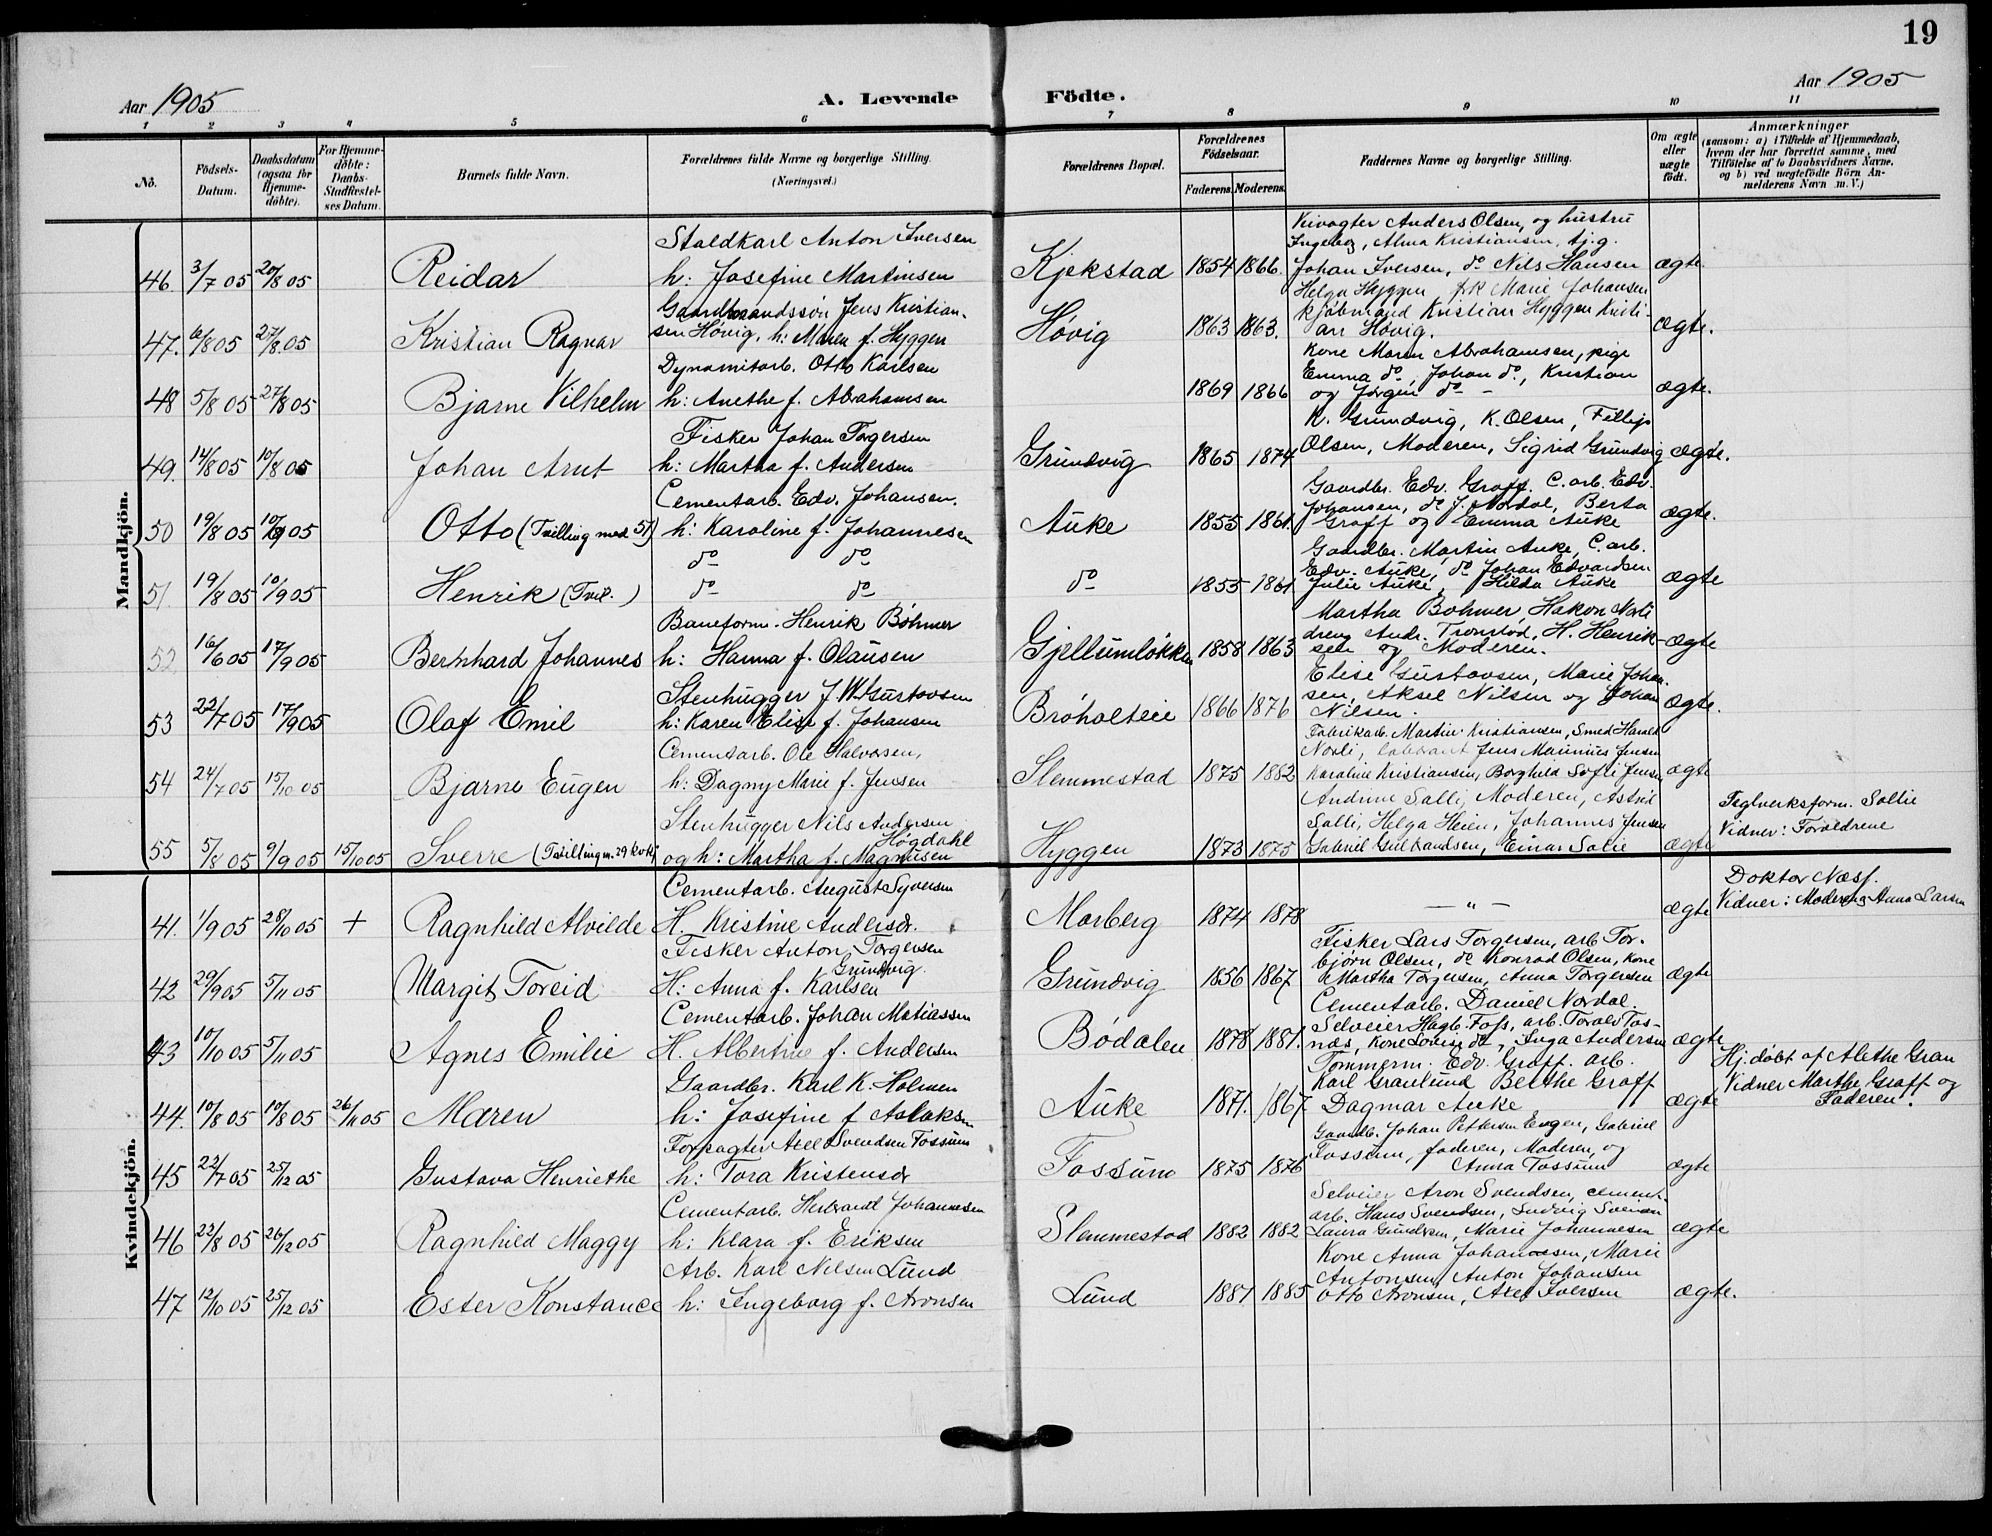 19
Aar 1905
A. Levende Födte.
Aar 1905
1 2 3 4 5 6 7 8 9 10 11
No.
Födsels-Datum.
Daabsdatum (ogsaa for Hjemmedöbte).
For Hjemmedöbte: Daabs-Stadfæstelses Datum.
Barnets fulde Navn.
Forældrenes fulde Navne og borgerlige Stilling.
(Næringsvei.)
Forældrenes Bopæl.
Forældrenes Födselsaar.
Faderens. Moderens.
Faddernes Navne og borgerlige Stilling.
Om ægte eller uægte födt.
Anmærkninger
(saasom: a) i Tilfælde af Hjemmedaab, hvem der har forrettet samme, med Tilföielse af to Daabsvidners Navne, og b) ved uægtefödte Börn Anmelderens Navn m. V.)
Mandkjön.
Staldkarl Anton Iversen
46. 3/7 05 20/8 05 Reidar h: Josefine Martinsen Kjekstad 1854 1866.
Vivogter Anders Olsen, og hustru
Ingeborg, Alma Kristiansen, tj.g.
Johan Iversen, do Nils Hansen ægte
Gaardmandssön Jens Kristian-
47. 6/8 05 27/8.05 Kristian Ragnar sen Høvig, h: Maren f. Hyggen Høvig 1863 1863.
Helga Hyggen, frk Marie Johansen
kjøbmand Kristian Hyggen Kristi-
an Høvig. ægte.
Dynamitarb. Otto Karlsen
48 5/8 05 27/8 05 Bjarne Vilhelm h: Anethe f. Abrahamsen 1869 1866
Kone Maren Abrahamsen, pige
Emma do, Johan do, Kristian
og Jørgen do - ægte.
Fisker Johan Torgersen
49. 14/8 05 10/8 05 Johan Arnt h: Martha f. Andersen Grundvig 1865 1874
K. Grundvig, K. Olsen, Fillip
Olsen, Moderen, Sigrid Grundvig ægte.
Cementarb. Edv. Johansen.
50 19/8 05 10/9 05 Otto (Tvilling med 51) h: Karoline f. Johannesen Auke 1855 1861.
Gaardbr. Edv. Graff. C. arb. Edv.
Johansen, do J. Nordal, Berta
Graff og Emma Auke ægte.
do do
51. 19/8 05 10/9 05 Henrik (Tvil.) do do do 1855 1861
Gaardbr. Martin Auke, C. arb.
Edv. Auke, do Johan Edvardsen
Julie Auke, Hilda Auke ægte
Baneform. Henrik Bøhmer
52. 16/6 05 17/9 05 Bernhard Johannes h: Hanna f. Olausen Gjellumløkken 1858 1863
Martha Bøhmer, Hakon
Andr. Tronstød, H. Henrik-
sen og Moderen. ægte
Stenhugger J. W. Gustavsen
53 22/7 05 17/9 05 Olaf Emil h: Karen Elise f. Johansen Brøholteie 1866 1876
Elise Gustavsen, Marie Johan-
sen, Aksel Nilsen og Johan
Nilsen. ægte.
Cementarb. Ole Halvorsen,
54 24/7 05 15/10 05 Bjarne Eugen h: Dagny Marie f. Jensen Slemmestad 1875 1882
Fabrikarb. Martin Kristiansen, Smed Harald
Nærli, Jens Jensen
Karoline Kristiansen, Borghild Sofie Jensen ægte
Stenhugger Nils Andersen
Høgdahl
55 5/8 05 9/9 05 15/10 05 Sverre (Tvilling m. 29 kvk) og h: Martha f. Magnusen Hyggen 1873 1875
Andrine Solli, Moderen, Astrid
Solli, Helga Heien, Johannes Jensen
Gabriel Gulbrandsen, Einar Solie ægte
Teglverksform. Sollie
Vidner: Forældrene
Kvindekjön.
Cementarb. August Syversen
41. 1/9 05 28/10 05 + Ragnhild Alvilde H. Kristine Andersdr. Morberg 1874 1878 — " — ægte
Doktor Næss.
Vidner: Moderen & Anna Larsen
Fisker Anton Torgersen
Grundvig.
42 29/9 05 5/11 05 Margit Toreid H: Anna f. Karlsen Grundvig 1856 1867
Fisker Lars Torgersen, arb Tor-
bjørn Olsen, do Konrad Olsen, Kone
Martha Torgersen, Anna Torgersen ægte
Cementarb. Johan Matiassen
43 10/10 05 5/11 05 Agnes Emilie H. Albertine f. Andersen Bødalen 1878 1881.
Cementarb. Daniel Nordal.
Selveier Hagb. Foss, arb. Torals Tos-
næs, Kone Lovise do, Inga Andersen ægte
Gaardbr. Karl K. Holmen
44. 10/8 05 10/8 05 26/11 05 Maren h: Josefine f Aslaksen Auke 1871. 1867
Tømmerm. Edv. Graff. arb.
Karl Granlund Berthe Graff
Dagmar Auke ægte
Hj. døbt af Alethe Gran
Vidner Marthe Graff og
Faderen.
Forpagter Axel Svendsen Fossum
45 22/7 05 25/12 05 Gustava Henriethe h: Tora Kristensdr Fossum 1875 1876
Gaardb. Johan Pettersen Engen, Gabriel
Fossum, faderen, Moderen og
Anna Fossum ægte
Cementarb. Herbrandt Johannesen
46 22/8 05 26/12 05 Ragnhild Maggy h: Klara f. Eriksen Slemmestad 1882 1882
Selveier Aron Svendsen, cement-
arb. Hans Svendsen, Ludvig Svendsen
Laura Gundersen, Marie Johannesen ægte
Arb. Karl Nilsen Lund
47 12/10 05 25/12 05 Ester Konstance h: Ingeborg f. Aronsen Lund 1881 1885
Kone Anna Johansen, Marie
Antonsen, Anton Johansen
Otto Aronsen, Axel Iversen ægte.